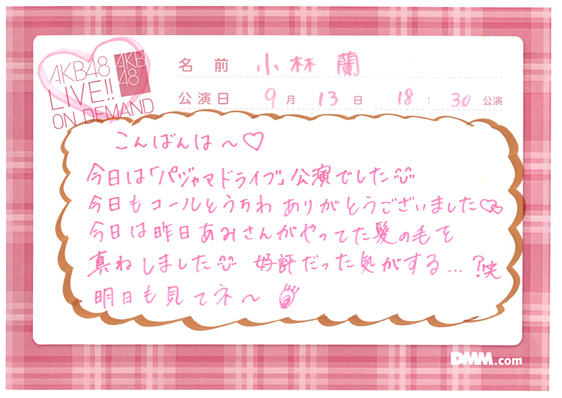 AKB48
LIVE!!
ON DEMAND
AKB
48
名前 小林蘭
公演日 9月 13日 18:30 公演
こんばんは〜♡
今日は「パジャマドライブ」公演でした
今日もコールとうちわ ありがとうございました
今日は昨日あみさんがやってた髪の毛を
真ねしました 好評だった気がする…?笑
明日も見てネ〜
DMM.com